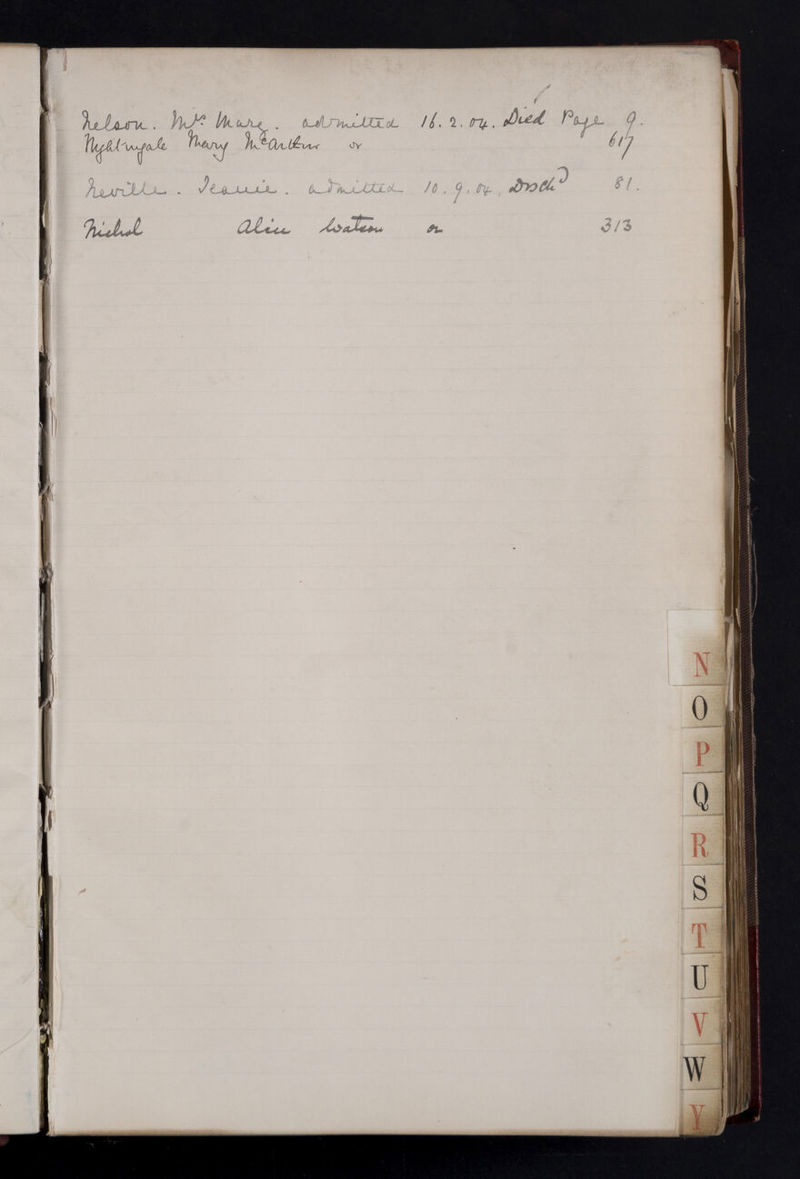 Nelson. Mrs Mary. admitted 16.2.04. Died Page 9.
Nightingale Mary McArthur or 617
Neville. Jeanie. admitted 10.9.04. Dischd 81.
Nichol Alice Watson or 313
N
O
P
Q
R
S
T
U
V
W
Y